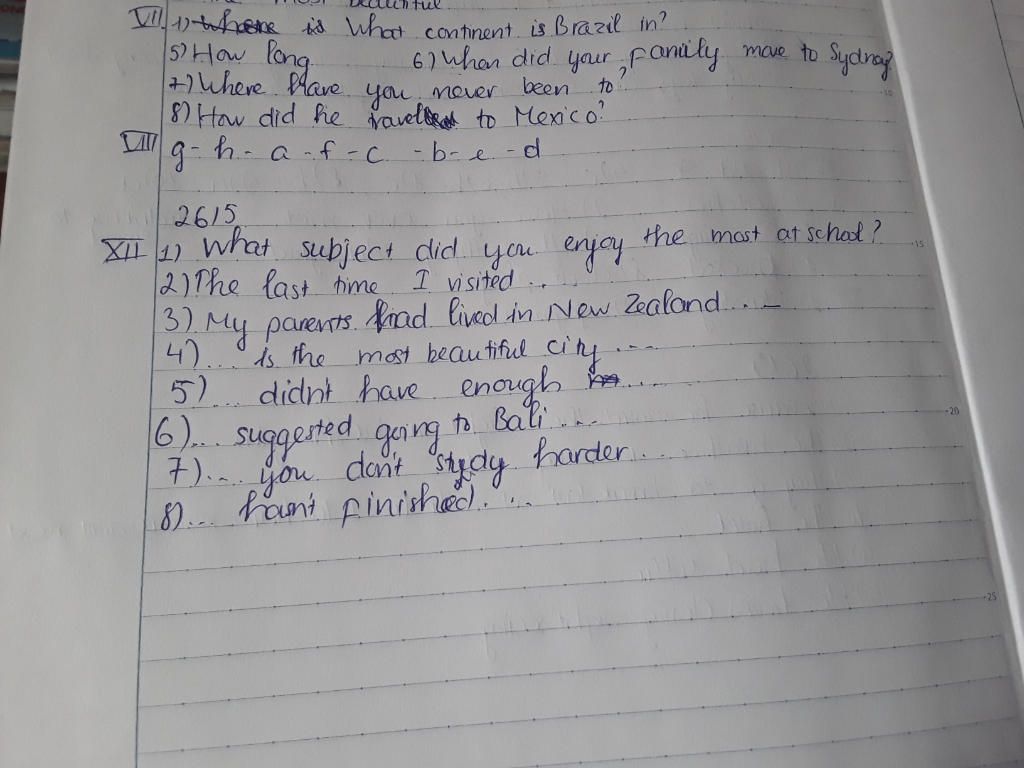 the most beautiful
VII 1) What continent is Brazil in?
5) How long 6) When did your family move to Sydney?
7) Where have you never been to?
8) How did he travel to Mexico?
VIII g - h - a - f - c - b - e - d
26/5
XII 1) What subject did you enjoy the most at school?
2) The last time I visited ...
3) My parents had lived in New Zealand ...
4) ... is the most beautiful city ...
5) ... didn't have enough ...
6) ... suggested going to Bali ...
7) ... you don't study harder ...
8) ... hasn't finished ...